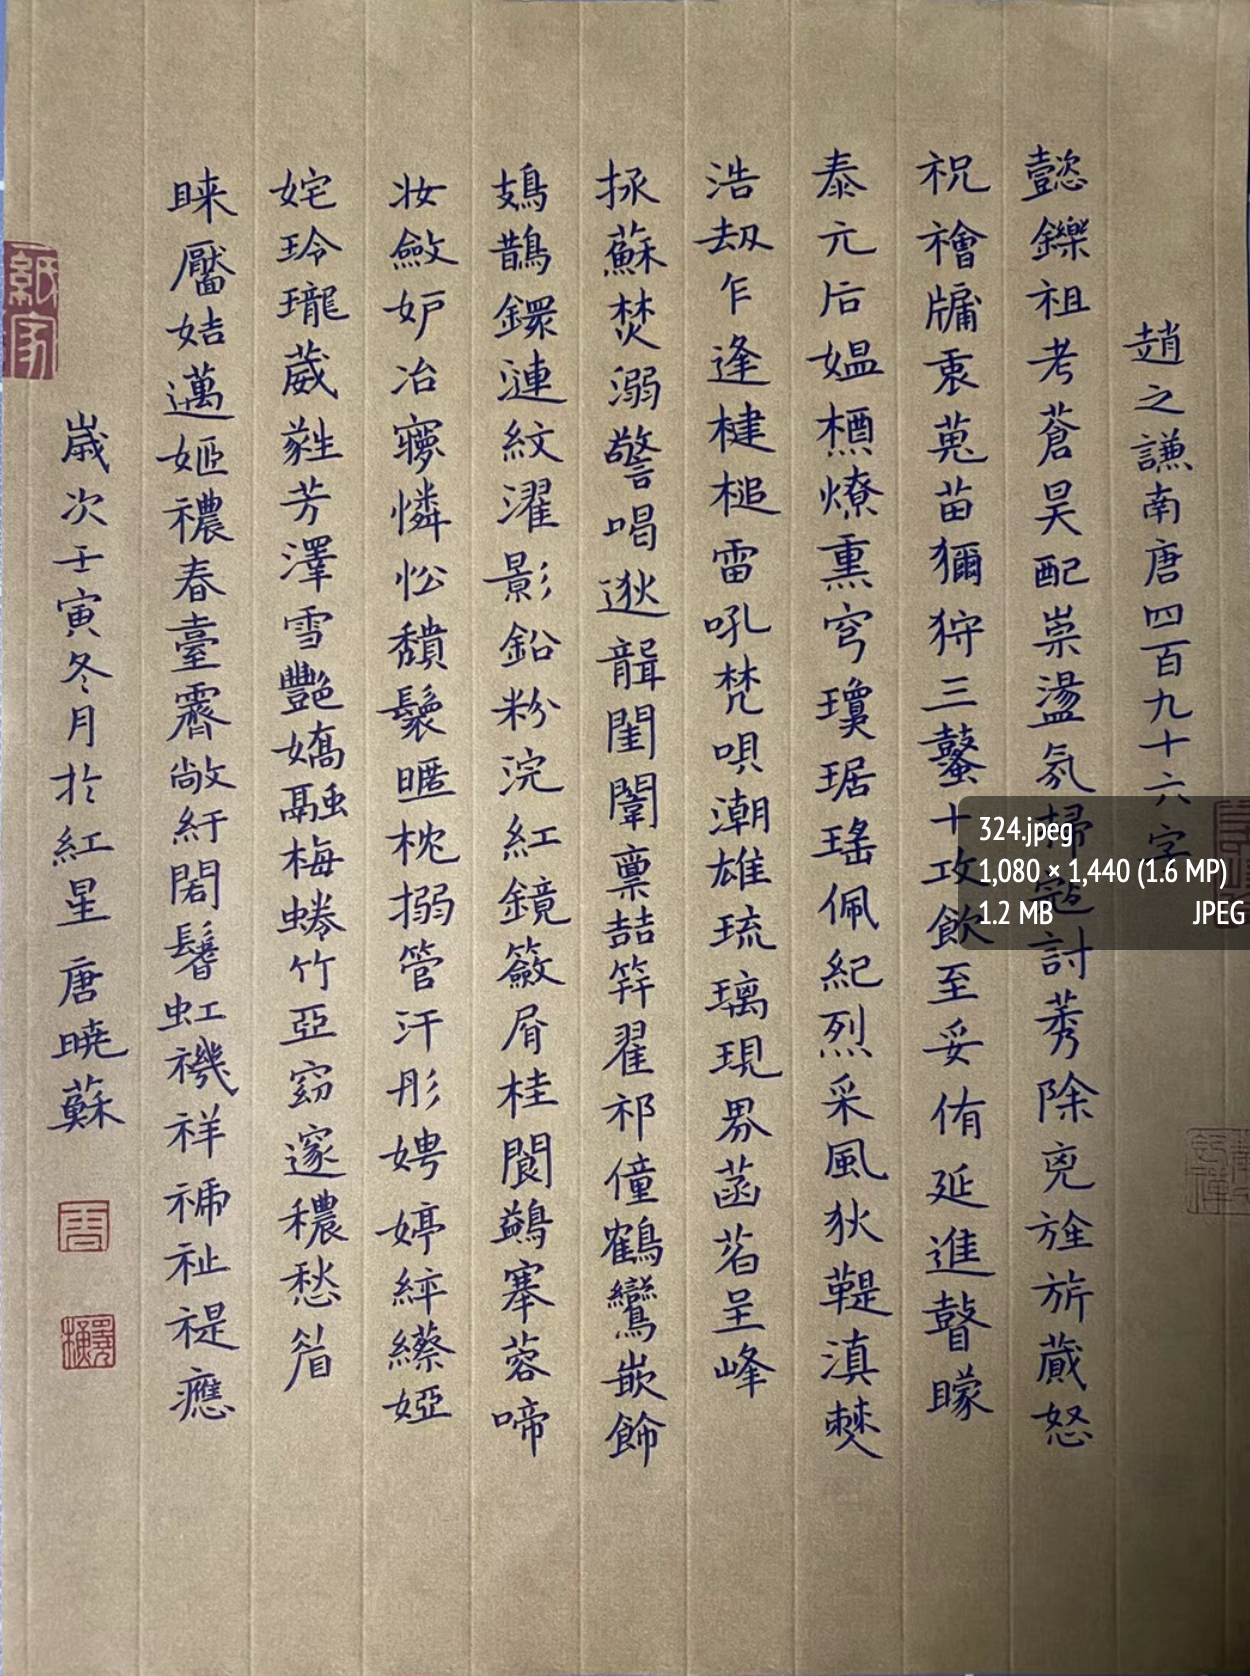 趙之謙南唐四百九十六字
懿鑠祖考蒼昊配祟盪氛掃寇討莠除兇旌旂蕆怒
祝襘牖衷蒐苗獮狩三鼜十攻飲至妥侑延進瞽矇
泰元后媼槱燎熏穹瓊琚瑤佩紀烈采風狄鞮滇僰
浩劫乍逢楗槌雷吼梵唄潮雄琉璃現界菡萏呈峰
拯蘇焚溺警喝逖聾闉闍稟喆竿翟祁僮鶴鸞嵌飾
鳷鵲鐶漣紋濯影鉛粉浣紅鏡籨屑桂閬鷁搴蓉啼
妝斂妒冶寥憐忪穨鬟暱枕搦管汗彤娉婷綷繺婭
姹玲瓏葳蕤芳澤雪艷嬌融梅蜷竹亞窈邃穠愁眉
睞靨姞邁嫗襛春臺霽敞紆閎鬐虹禨祥祉禔應
歲次壬寅冬月於紅星唐曉蘇
紙家
324.jpeg
1,080 × 1,440 (1.6 MP)
1.2 MB JPEG